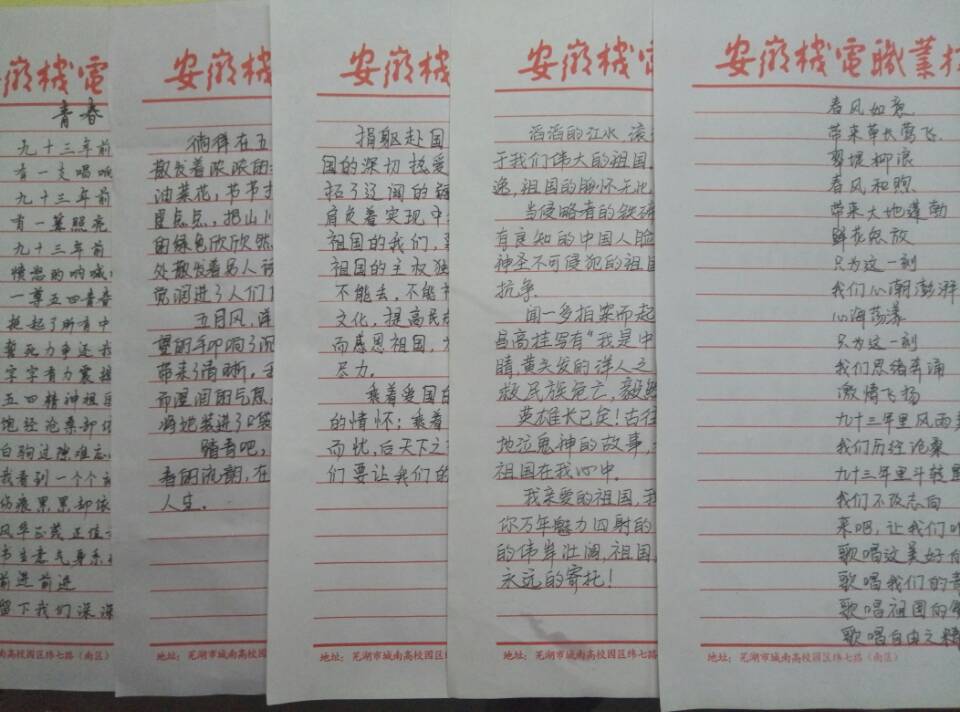 安徽機電
青春
九十三年前
有一支唱响
九十三年前
有一簇照亮
九十三年前
愤怒的呐喊
一尊五四青春
挺起了所有中
誓死力争还我
字字有力震撼
五四精神祖
饱经沧桑却
白驹过隙难忘
我看到一个个
伤痕累累却依
风华正茂正值
书生意气身系
前进前进
留下我们深深
南高校园区纬七路（南区）
安徽機
徜徉在五
散发着浓浓的
油菜花，节节
星点点，把山川
的绿色欣欣然
处散发着易人
觉润进了人们
五月风，洋
望的手叩响了
带来了清晰，
而湿润的气息
将把装进了口袋
踏青吧，
春的流韵，在
人生。
安徽機
捐躯赴国
国的深切热爱
拓了辽阔的疆
肩负着实现中
祖国的我们，
祖国的主权独
不能丢，不能
文化，提高民
而感恩祖国，
尽力。
乘着爱国
的情怀；乘着
而忧，后天下之
们要让我们的
地址：芜湖市城南高校园区
安徽機電
滔滔的江水，滚
于我们伟大的祖国。
逸，祖国的胸怀无比
当侵略者的铁蹄
有良知的中国人脸
神圣不可侵犯的祖国
抗争。
闻一多拍案而起
昌高挂写有“我是中
睛黄头发的洋人之
救民族危亡，毅
英雄长已矣！古往
地泣鬼神的故事，
祖国在我心中。
我亲爱的祖国，我
你万年魅力四射的
的伟岸壮阔，祖国，
永远的寄托！
地址：芜湖市城南高校园区纬七
安徽機電職業技
春风如意
带来草长莺飞
剪堤柳浪
春风和煦
带来大地蓬勃
鲜花怒放
只为这一刻
我们心潮澎湃
心海荡漾
只为这一刻
我们思绪奔涌
激情飞扬
九十三年里风雨
我们历经沧桑
九十三年里斗转星
我们不改志向
来吧，让我们
歌唱这美好
歌唱我们的青
歌唱祖国的
歌唱自由之
地址：芜湖市城南高校园区纬七路（南区）